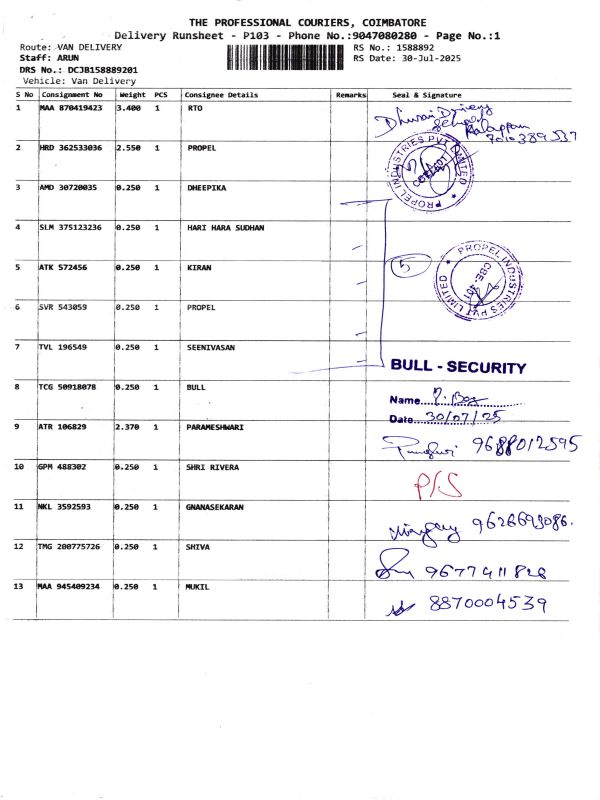 THE PROFESSIONAL COURIERS, COIMBATORE
Delivery Runsheet - P103 - Phone No.:9047080280 - Page No.:1
Route: VAN DELIVERY RS No.: 1588892
Staff: ARUN RS Date: 30-Jul-2025
DRS No.: DCJB158889201
Vehicle: Van Delivery
S No Consignment No Weight PCS Consignee Details Remarks Seal & Signature
1 MAA 870419423 3.400 1 RTO
2 HRD 362533036 2.550 1 PROPEL
PROPEL INDUSTRIES PVT LIMITED
3 AMD 30720035 0.250 1 DHEEPIKA
4 SLM 375123236 0.250 1 HARI HARA SUDHAN
5 ATK 572456 0.250 1 KIRAN 5
PROPEL INDUSTRIES PVT LIMITED
6 SVR 543059 0.250 1 PROPEL
7 TVL 196549 0.250 1 SEENIVASAN
BULL - SECURITY
8 TCG 50918078 0.250 1 BULL
Name
Date 30/07/25
9 ATR 106829 2.370 1 PARAMESHWARI 9688012595
10 GPM 488302 0.250 1 SHRI RIVERA P/S
11 NKL 3592593 0.250 1 GNANASEKARAN 9626693086.
12 TMG 200775726 0.250 1 SHIVA 9677411828
13 MAA 945409234 0.250 1 MUKIL 8870004539